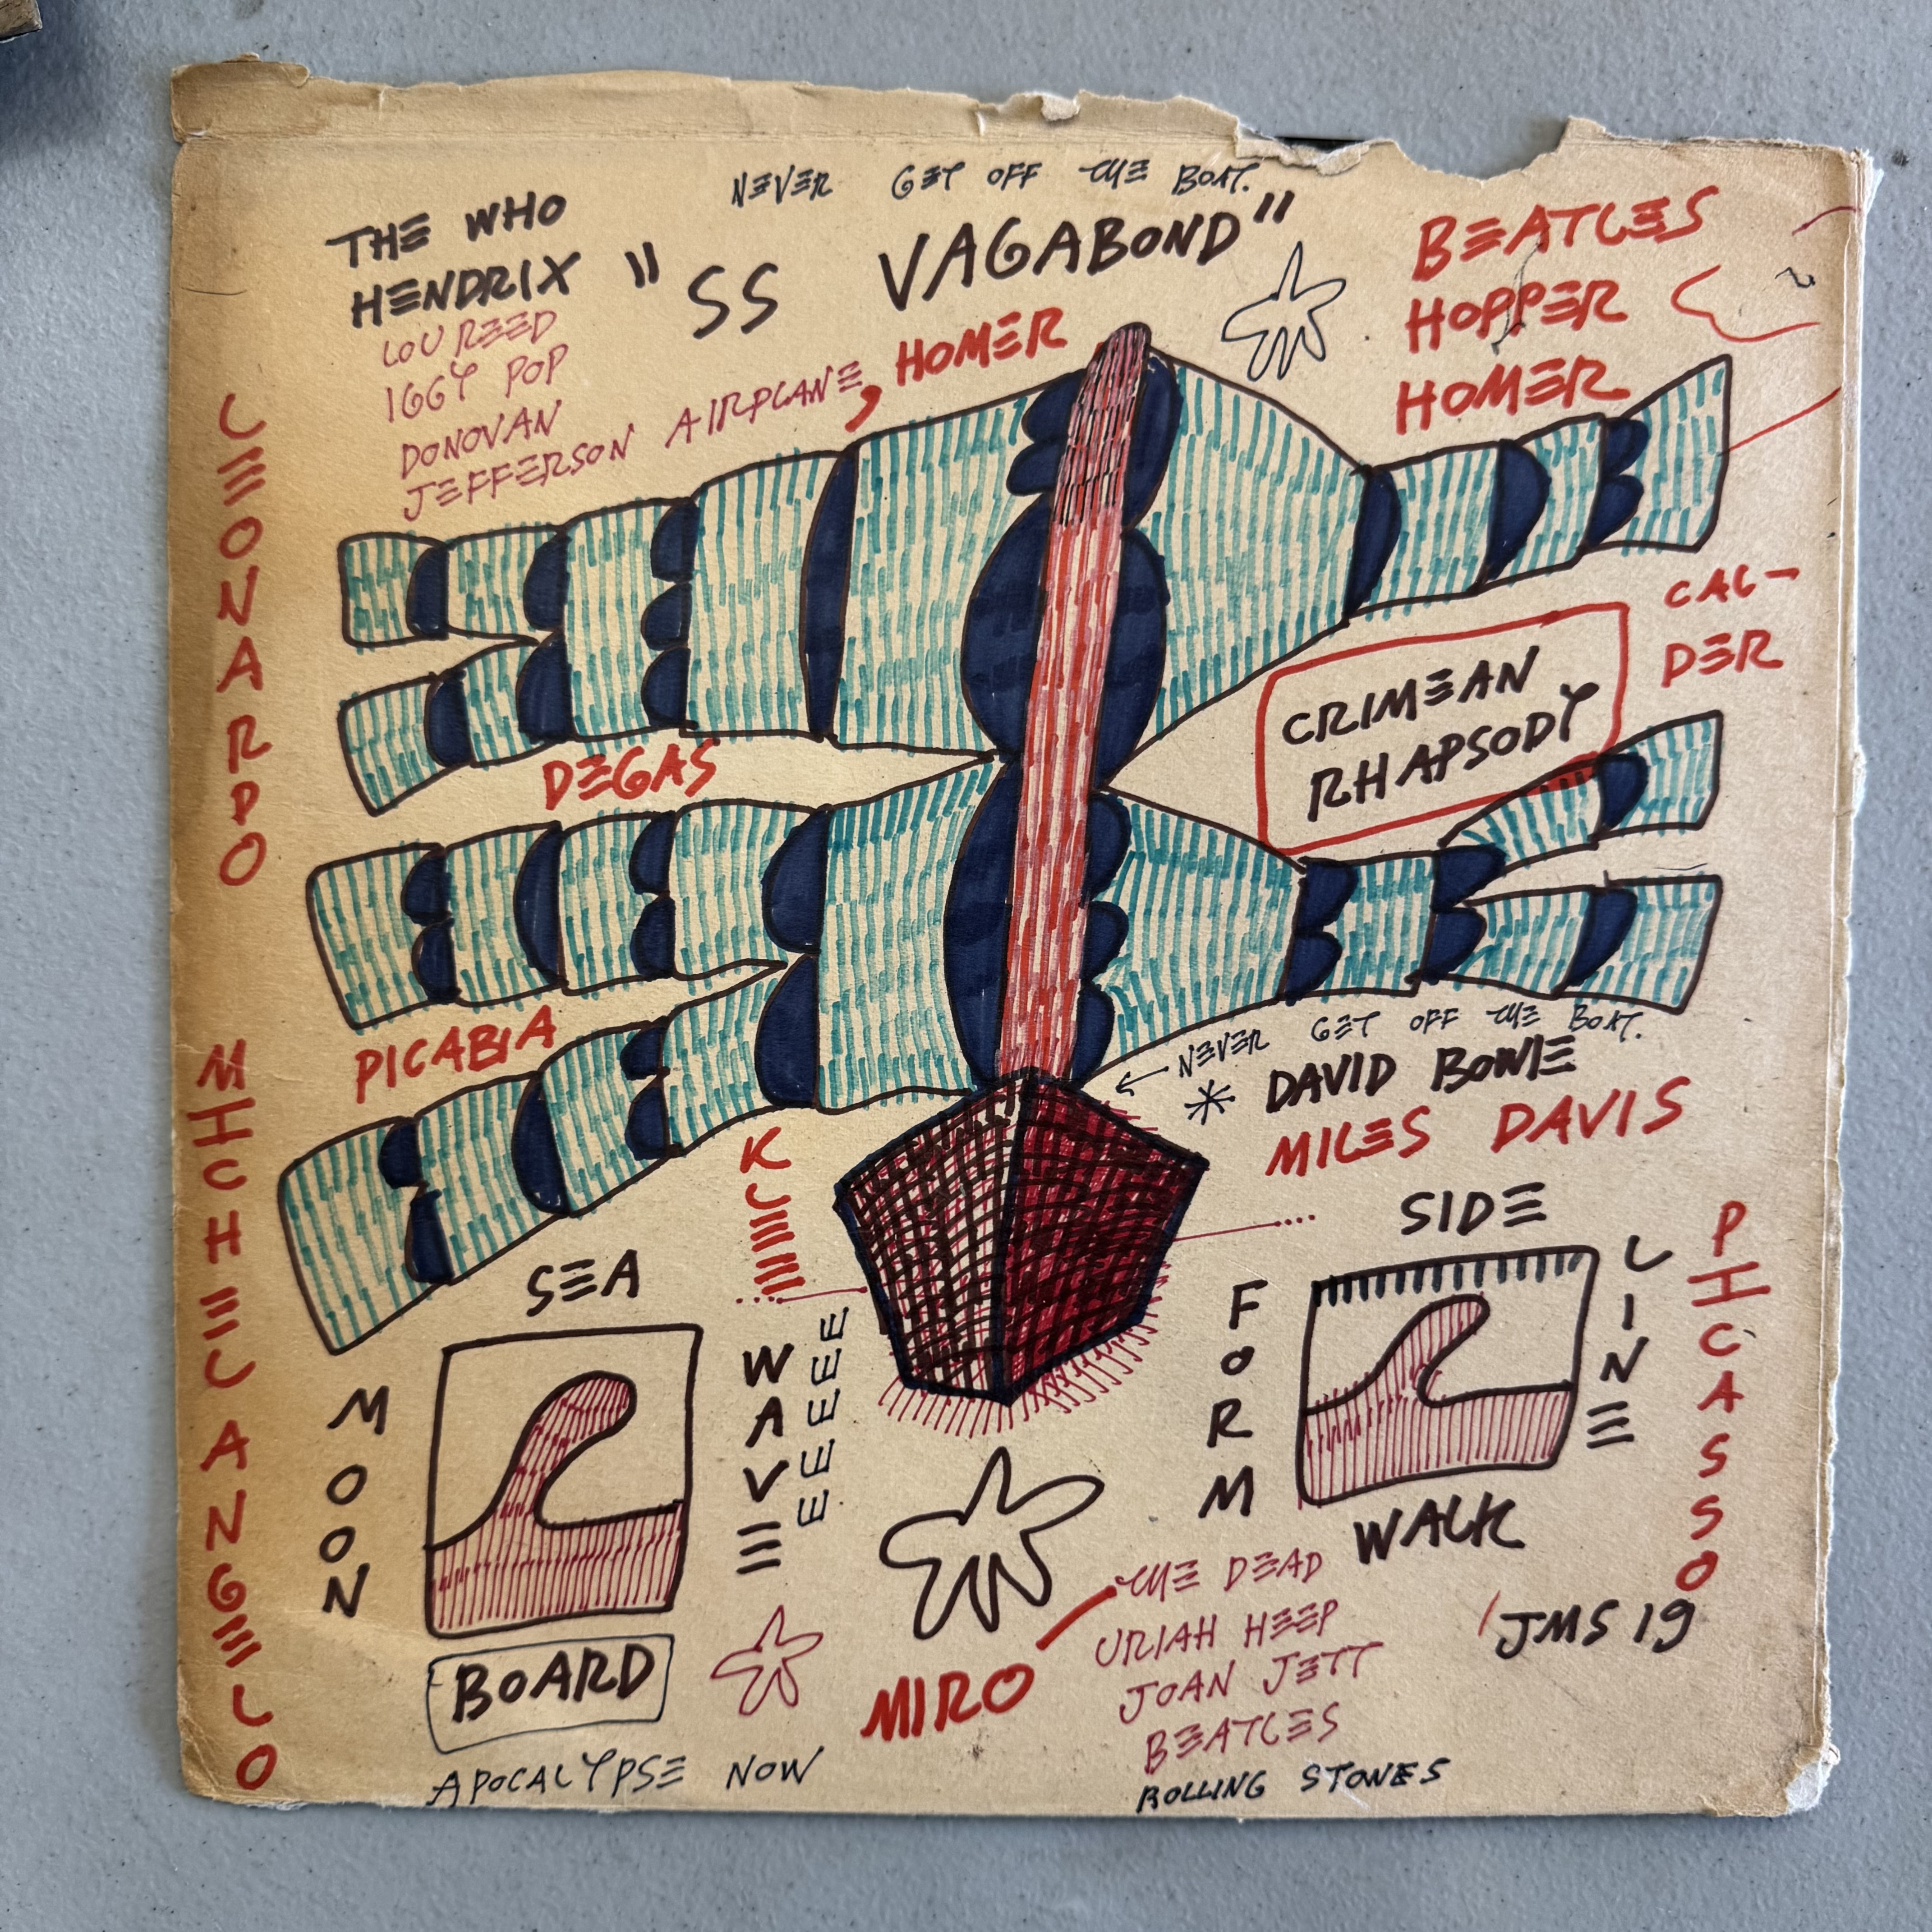 NEVER GET OFF THE BOAT.
"SS VAGABOND"
THE WHO
HENDRIX
LOU REED
IGGY POP
DONOVAN
JEFFERSON AIRPLANE, HOMER
BEATLES
HOPPER
HOMER
LEONARDO
CAL-
DER
CRIMEAN
RHAPSODY
DEGAS
PICABIA
NEVER GET OFF THE BOAT.
* DAVID BOWIE
MILES DAVIS
MICHELANGELO
KLEE
SEA
MOON
WAVE
EEEEE
BOARD
APOCALYPSE NOW
SIDE
LINE
FORM
WALK
PICASSO
MIRO
THE DEAD
URIAH HEEP
JOAN JETT
BEATLES
ROLLING STONES
JMS 19